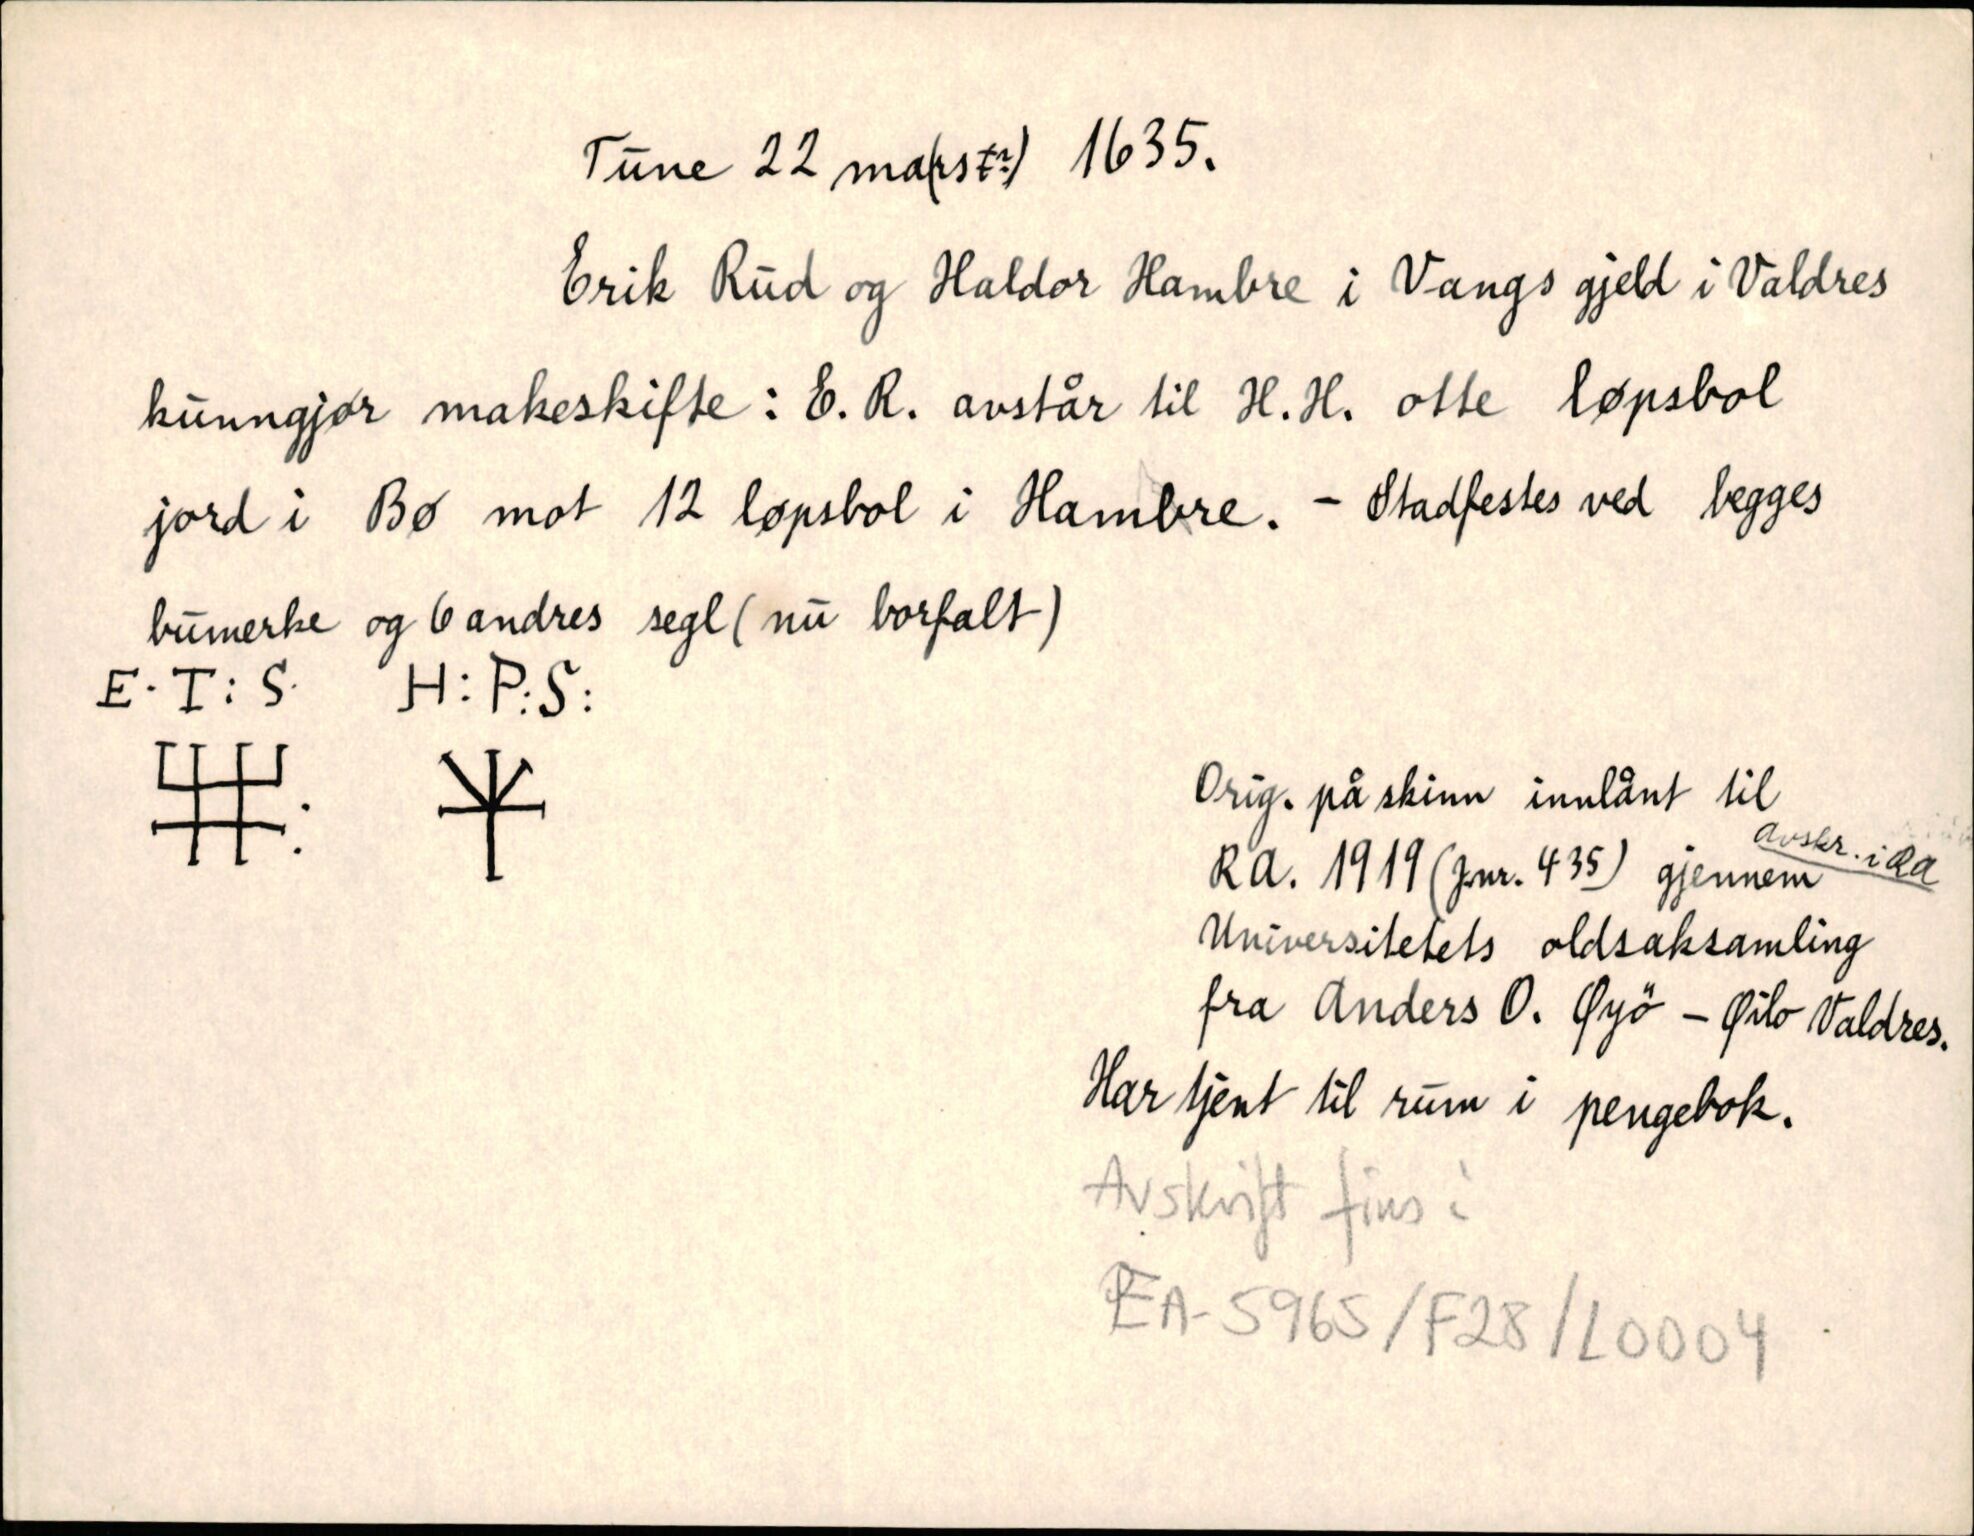 Tune 22 ma(rst?) 1635.
Erik Rud og Haldor Hambre i Vangs gjeld i Valdres
kunngjør makeskifte: E. R. avstår til H.H. otte løpsbol
jord i Bø mot 12 løpsbol i Hambre. - Stadfestes ved begges
bumerke og 6 andres segl (nu borfalt)
E. T: S. H: P: S:
Orig. på skinn innlånt til
RA. 1919 (Jnr. 435) gjennem
avskr. i RA
Universitetets oldsaksamling
fra Anders O. Øyö - Øilo Valdres.
Har tjent til rum i pengebok.
Avskrift fins i
EA-5965/F28/L0004